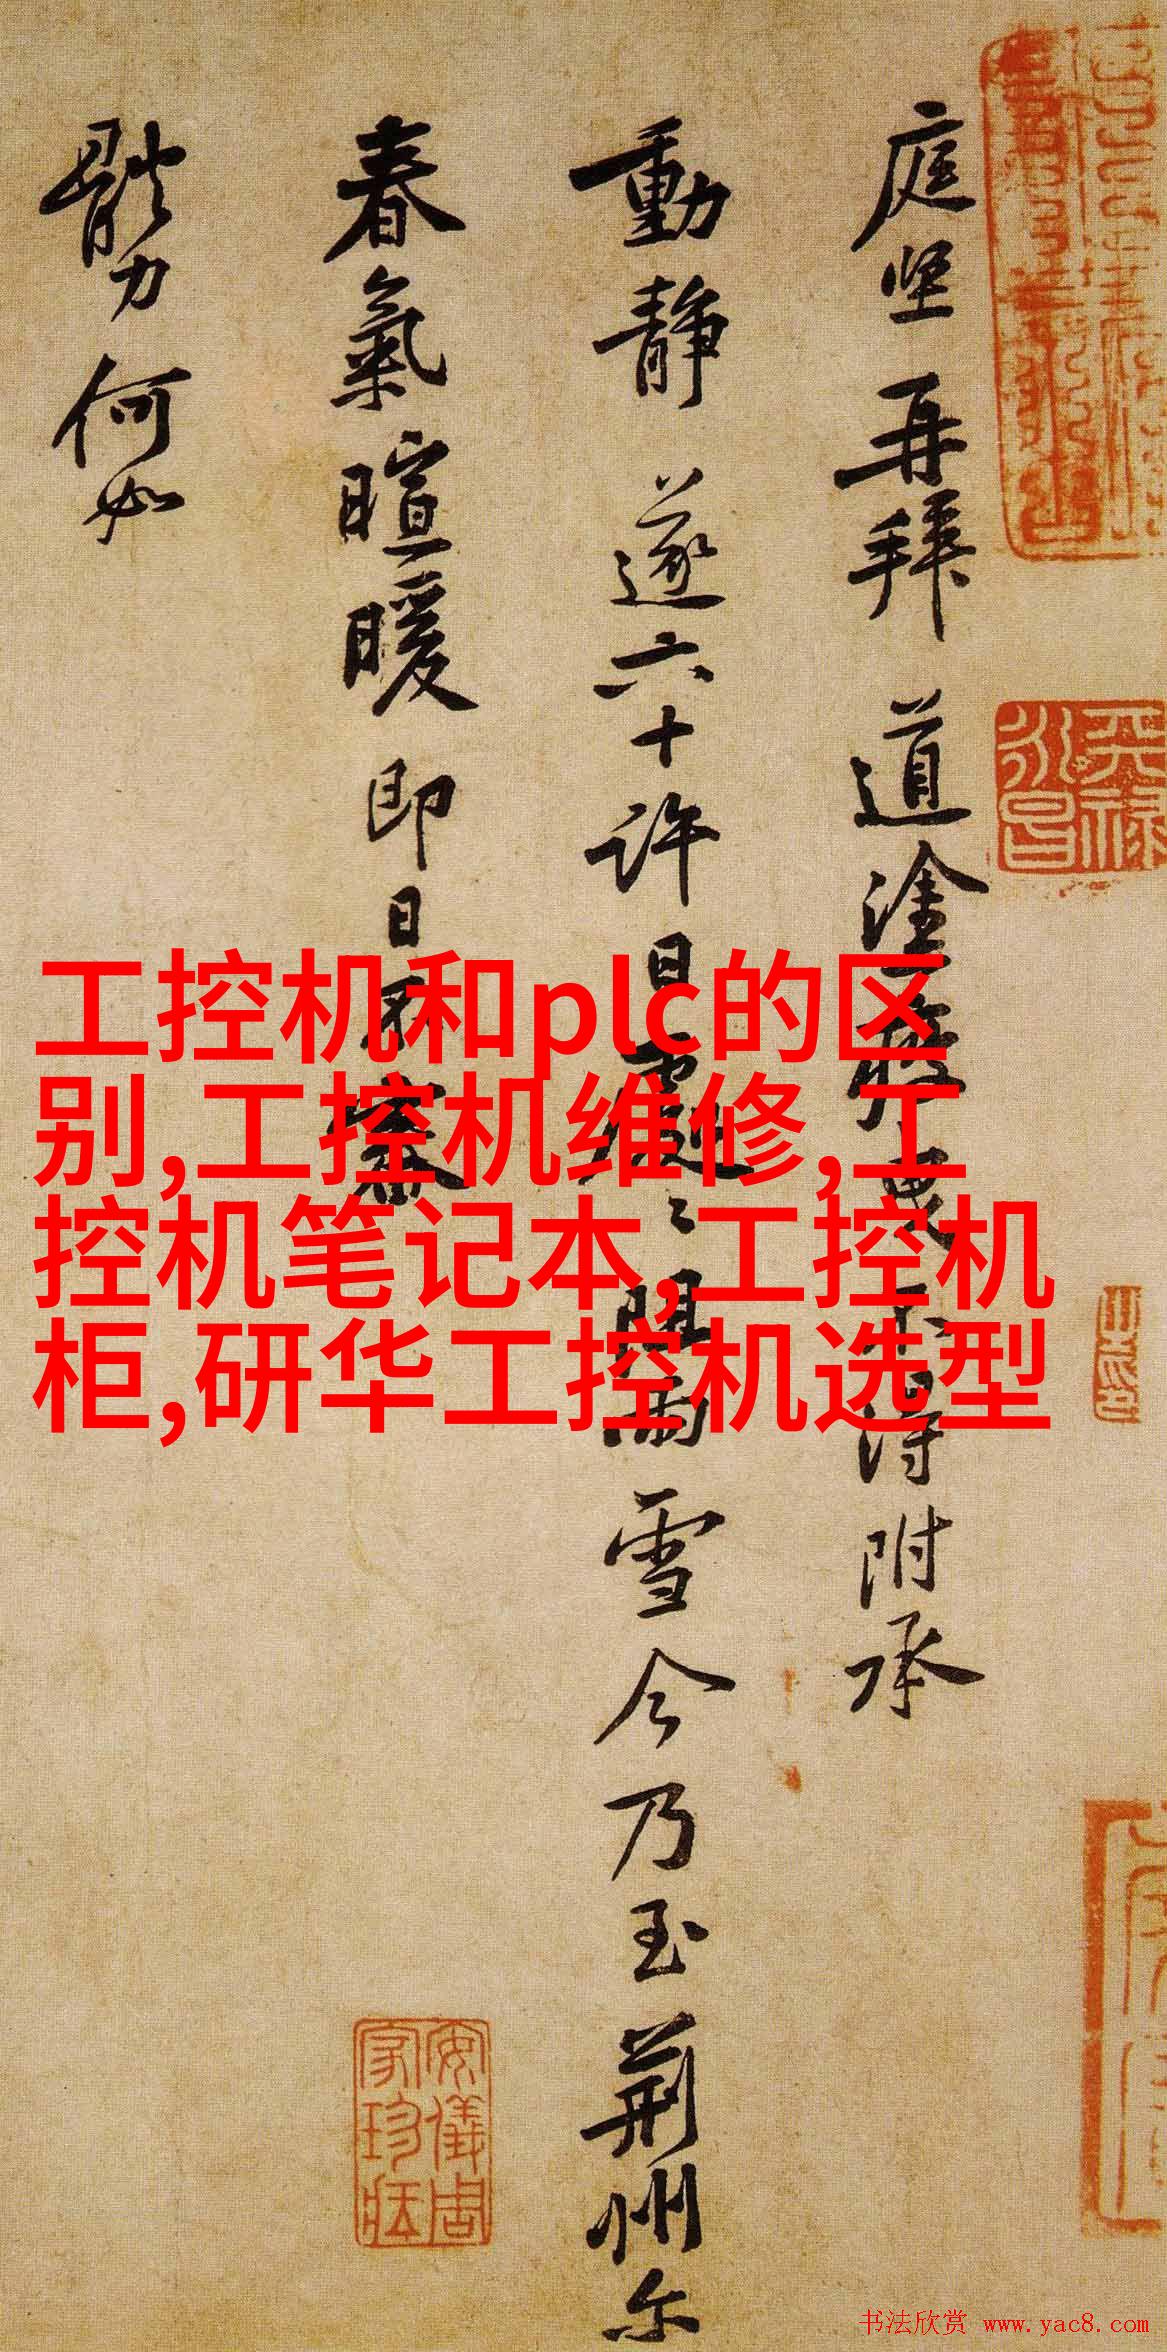 庭坚再拜道塗
得附承
動静遂六十许日
雪今乃至荆州尔
春氣暄暖即日不審
體力何如
工控机和plc的区
别,工控机维修,工
控机笔记本,工控机
柜,研华工控机选型
天禄
安儀周
家珍藏
书法欣赏 www.yac8.com